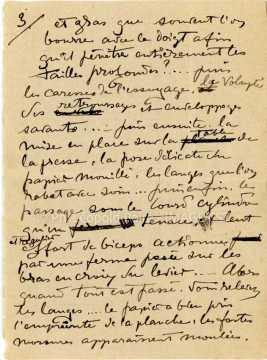 3/ et gras que souvent l'on
bourre avec le doigt afin
qu'il pénètre entièrement les
tailles profondes?... puis
les caresses de l'essuyage, la Volupté
des retroussages et enveloppages
savants... puis ensuite la
mise en place sur la table
de la presse, la pose délicate du
papier mouillé, les langes que l'on
rabat avec soin... puis enfin le
passage sous le lourd cylindre
qu'un lent
et régulier effort de biceps actionne
par une ferme pesée sur les
bras en croix du levier... Alors
quand tout est passé. l'on relève
les langes.... le papier a bien pris
l'empreinte de la planche; les fortes
morsures apparaissent moulées.